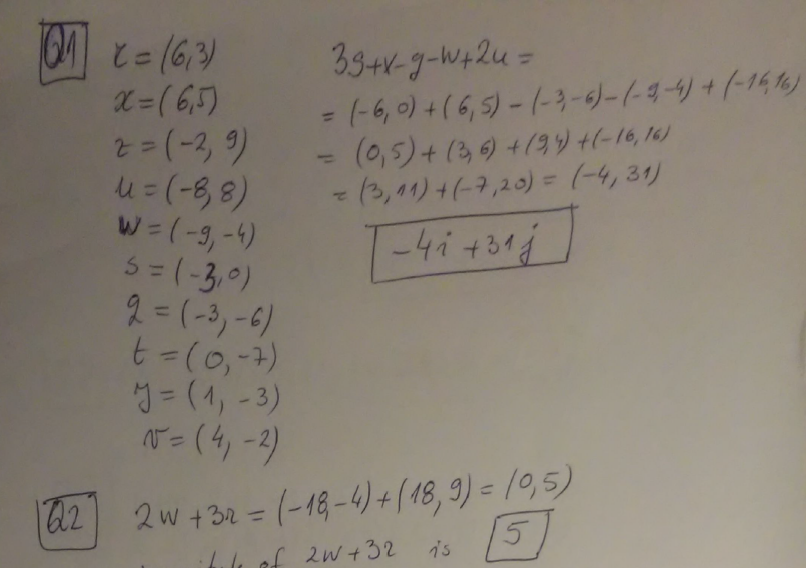 Q1
r = (6,3)
x = (6,5)
z = (-2, 9)
u = (-8, 8)
w = (-9, -4)
s = (-3, 0)
q = (-3, -6)
t = (0, -7)
y = (1, -3)
v = (4, -2)
3s+x-q-w+2u =
= (-6,0) + (6,5) - (-3,-6) - (-9,-4) + (-16,16)
= (0,5) + (3,6) + (9,4) + (-16,16)
= (3,11) + (-7,20) = (-4, 31)
-4i + 31j
Q2 2w + 3r = (-18,-4) + (18, 9) = (0,5)
of 2w + 3r is 5